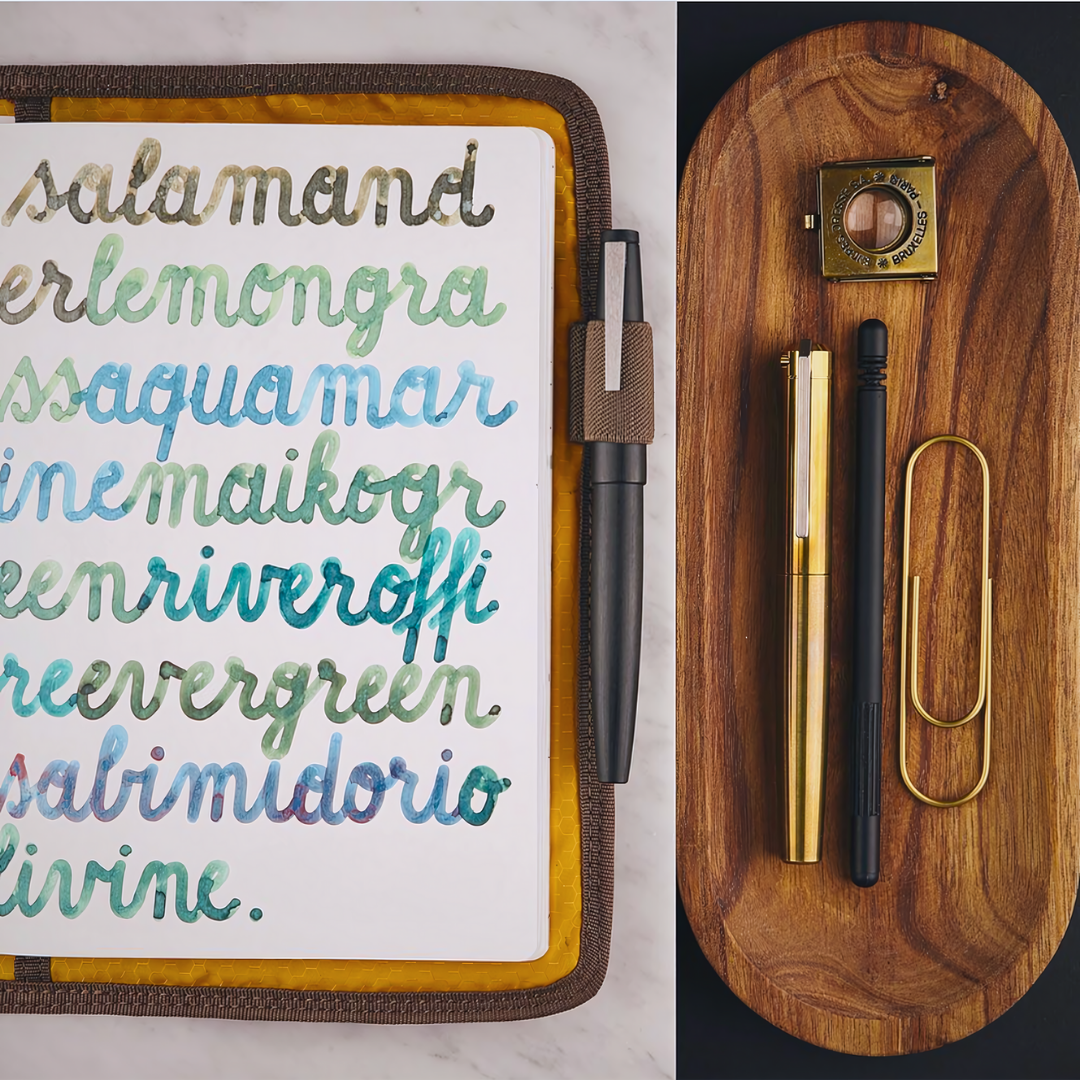 salamand
erlemongra
ssaquamar
inemaikogr
eenriveroffi
reevergreen.
sabimidorio
livine.
BRUXELLES — PARIS